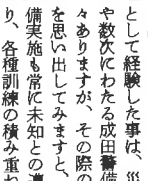 として経験した事は、災
や数次にわたる成田警備
々ありますが、その際の
を思い出してみますと、
備実施も常に未知との遭
り、各種訓練の積み重ね